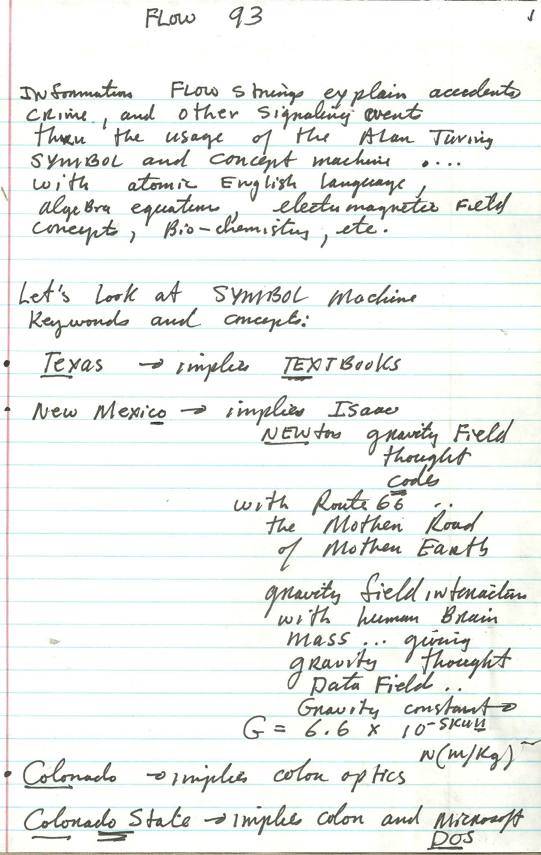 FLOW 93
1
Information FLOW strings explain accedents
CRime, and other signaling events
thru the usage of the Alan Turing
SYMBOL and concept machine ....
with atomic English language,
algebra equations, electromagnetic Field
concepts, Bio-chemistry, etc.
Let's look at SYMBOL Machine
Keywords and concepts:
• Texas → implies TEXTBOOKS
• New Mexico → implies Isaac
NEWton gravity Field
thought
codes
with Route 66 ..
the Mother Road
of Mother Earth
gravity field interaction
with human Brain
mass ... giving
gravity thought
Data Field ..
Gravity constant →
G = 6.6 x 10-SKull
N(m/kg)
• Colorado → implies colon optics
Colorado State → implies colon and Microsoft
DOS